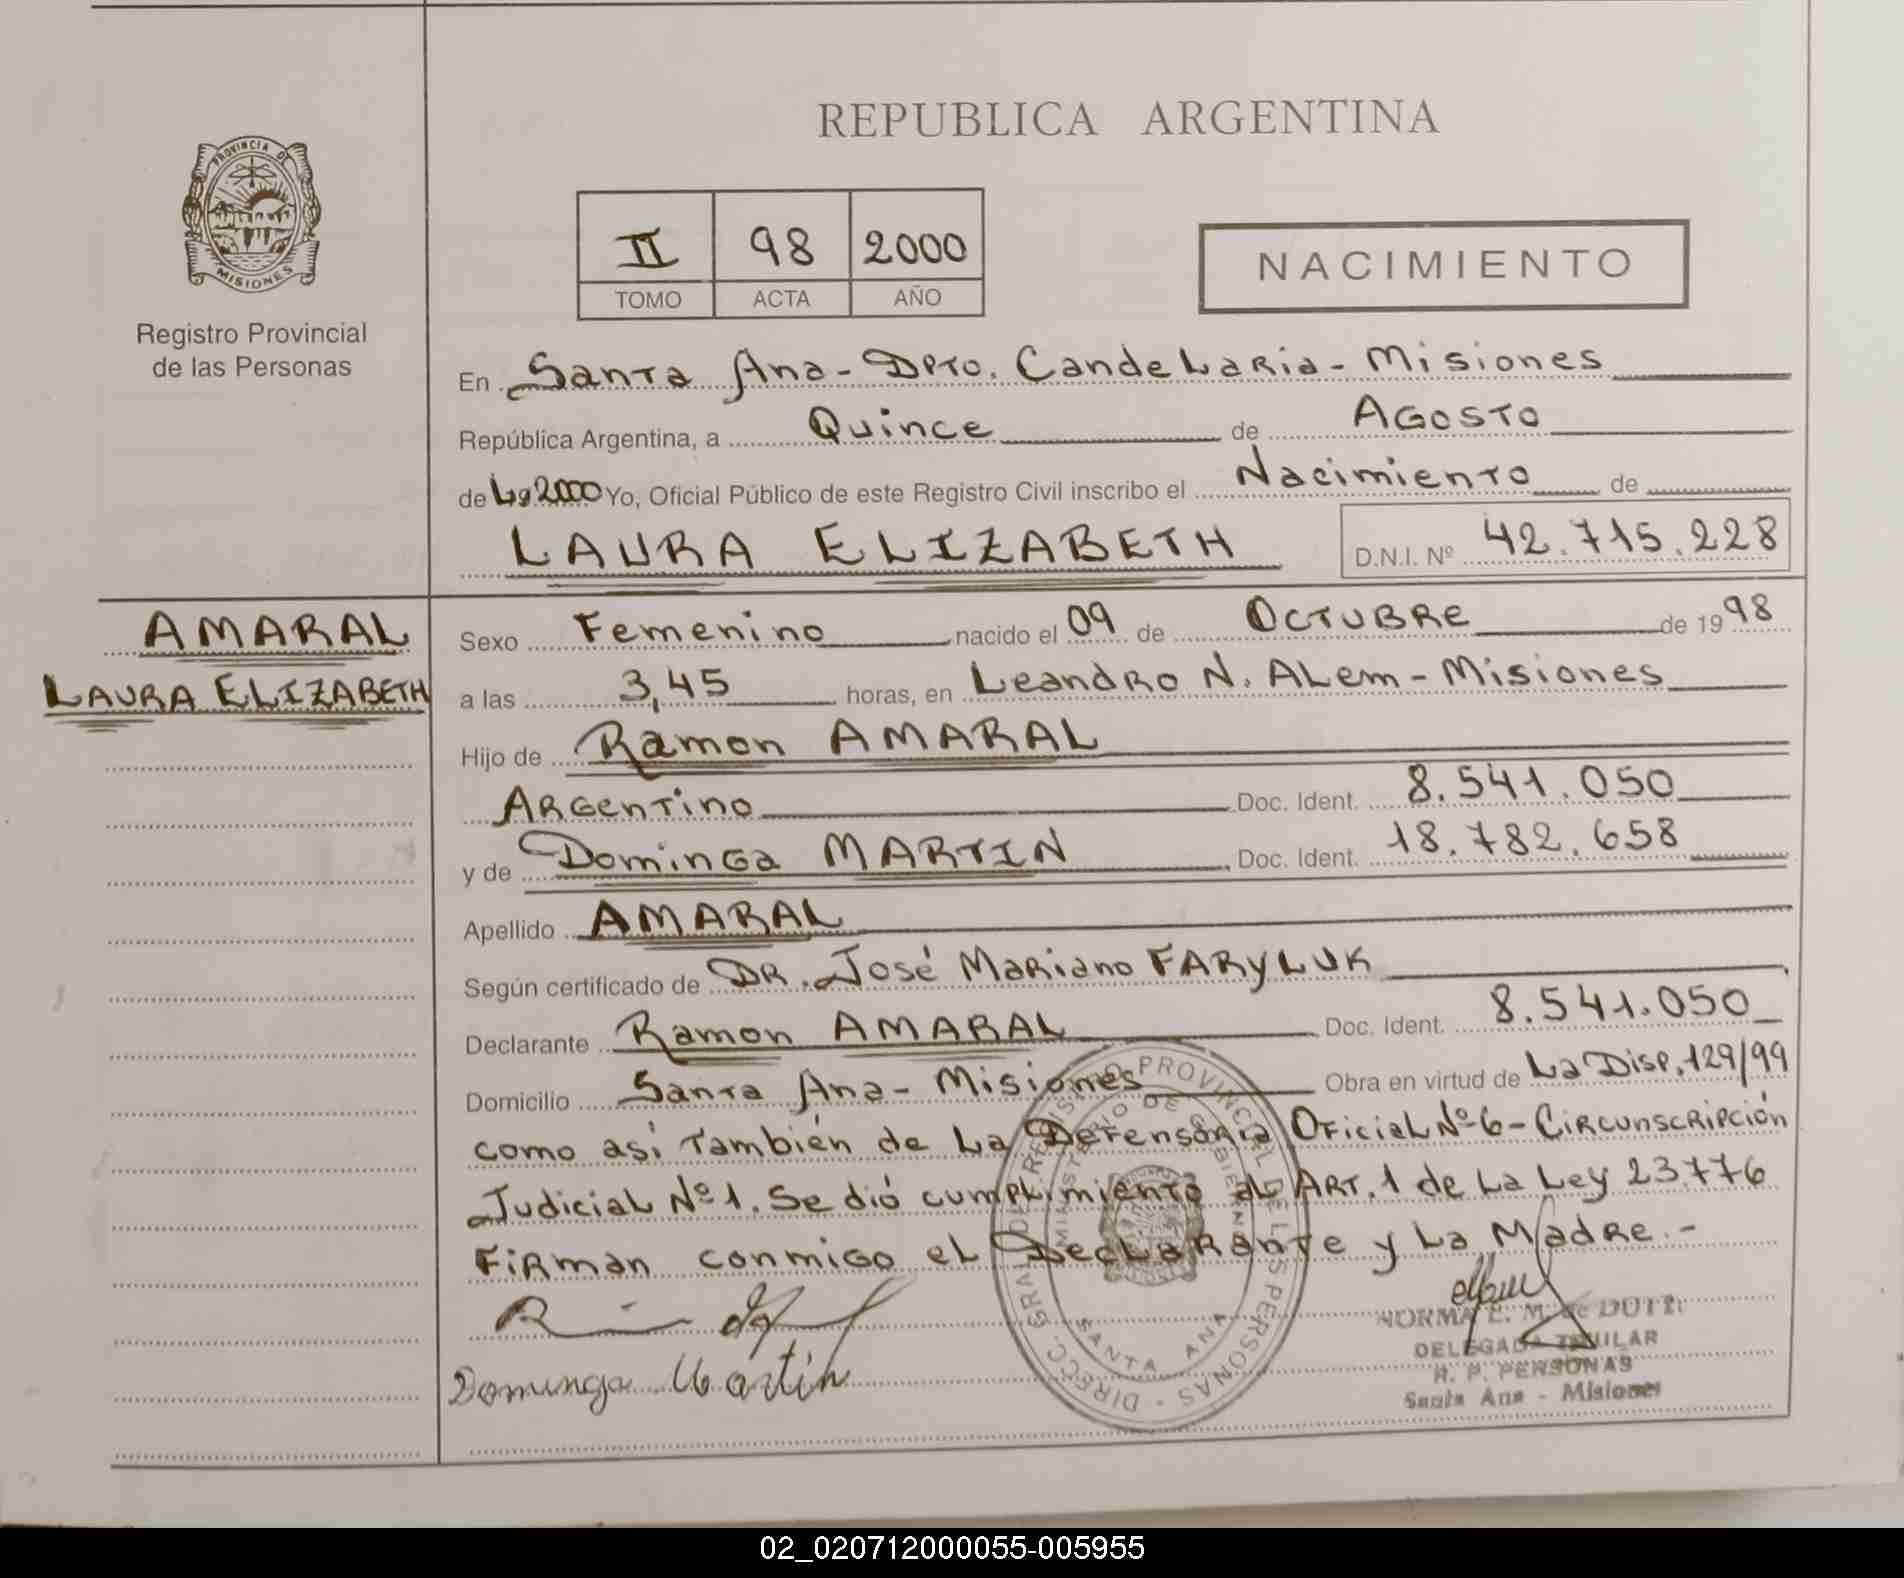 REPUBLICA ARGENTINA
PROVINCIA DE
MISIONES
Registro Provincial
de las Personas
II 98 2000
TOMO ACTA AÑO
NACIMIENTO
En Santa Ana - Dpto. Candelaria - Misiones
República Argentina, a Quince de Agosto
de 2000 Yo, Oficial Público de este Registro Civil inscribo el Nacimiento de
LAURA ELIZABETH D.N.I. Nº 42.715.228
AMARAL
LAURA ELIZABETH
Sexo Femenino nacido el 09 de Octubre de 1998
a las 3,45 horas, en Leandro N. Alem - Misiones
Hijo de Ramon AMARAL
Argentino Doc. Ident. 8.541.050
y de Dominga MARTIN Doc. Ident. 18.782.658
Apellido AMARAL
Según certificado de DR. José Mariano FARYLUK
Declarante Ramon AMARAL Doc. Ident. 8.541.050
Domicilio Santa Ana - Misiones Obra en virtud de La Disp. 129/99
como así También de La Defensoria Oficial Nº 6 - Circunscripción
Judicial Nº 1. Se dió cumplimiento al Art. 1 de La Ley 23.776
Firman conmigo el Declarante y La Madre. -
Dominga Martin
DIRECC. GRAL. DE REGISTRO PROVINCIAL DE LAS PERSONAS
SANTA ANA
NORMA E. M. de
DELEGADA TITULAR
R. P. PERSONAS
Santa Ana - Misiones
02_020712000055-005955